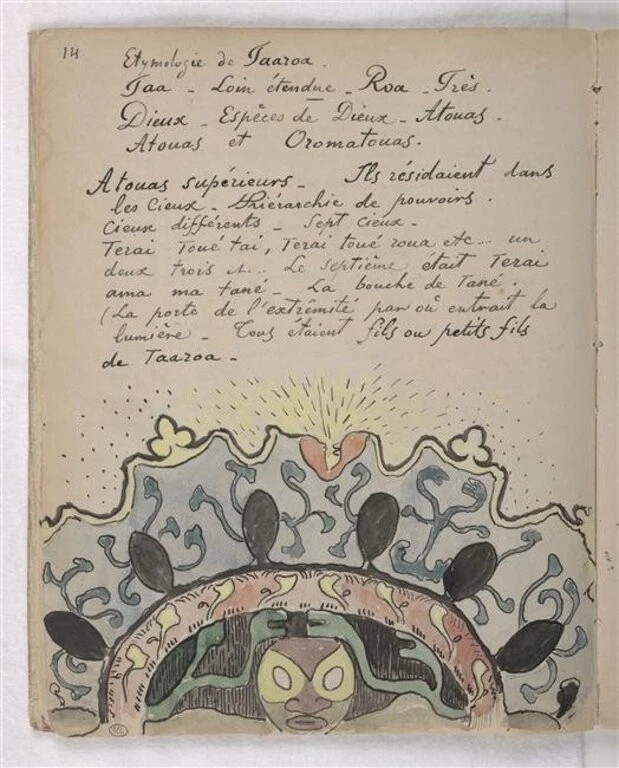 14
Etymologie de Taaroa.
Taa - Loin étendue - Roa - Très.
Dieux - Espèces de Dieux - Atouas -
Atouas et Oromatouas.
Atouas supérieurs - Ils résidaient dans
les Cieux - Hiérarchie de pouvoirs.
Cieux différents - Sept cieux -
Terai Toué tai, Terai toué roua etc... un
deux trois - Le septième était Terai
ama ma tané - La bouche de Tané.
(La porte de l'extrêmité par où entrait la
lumière - Tous étaient fils ou petits fils
de Taaroa -